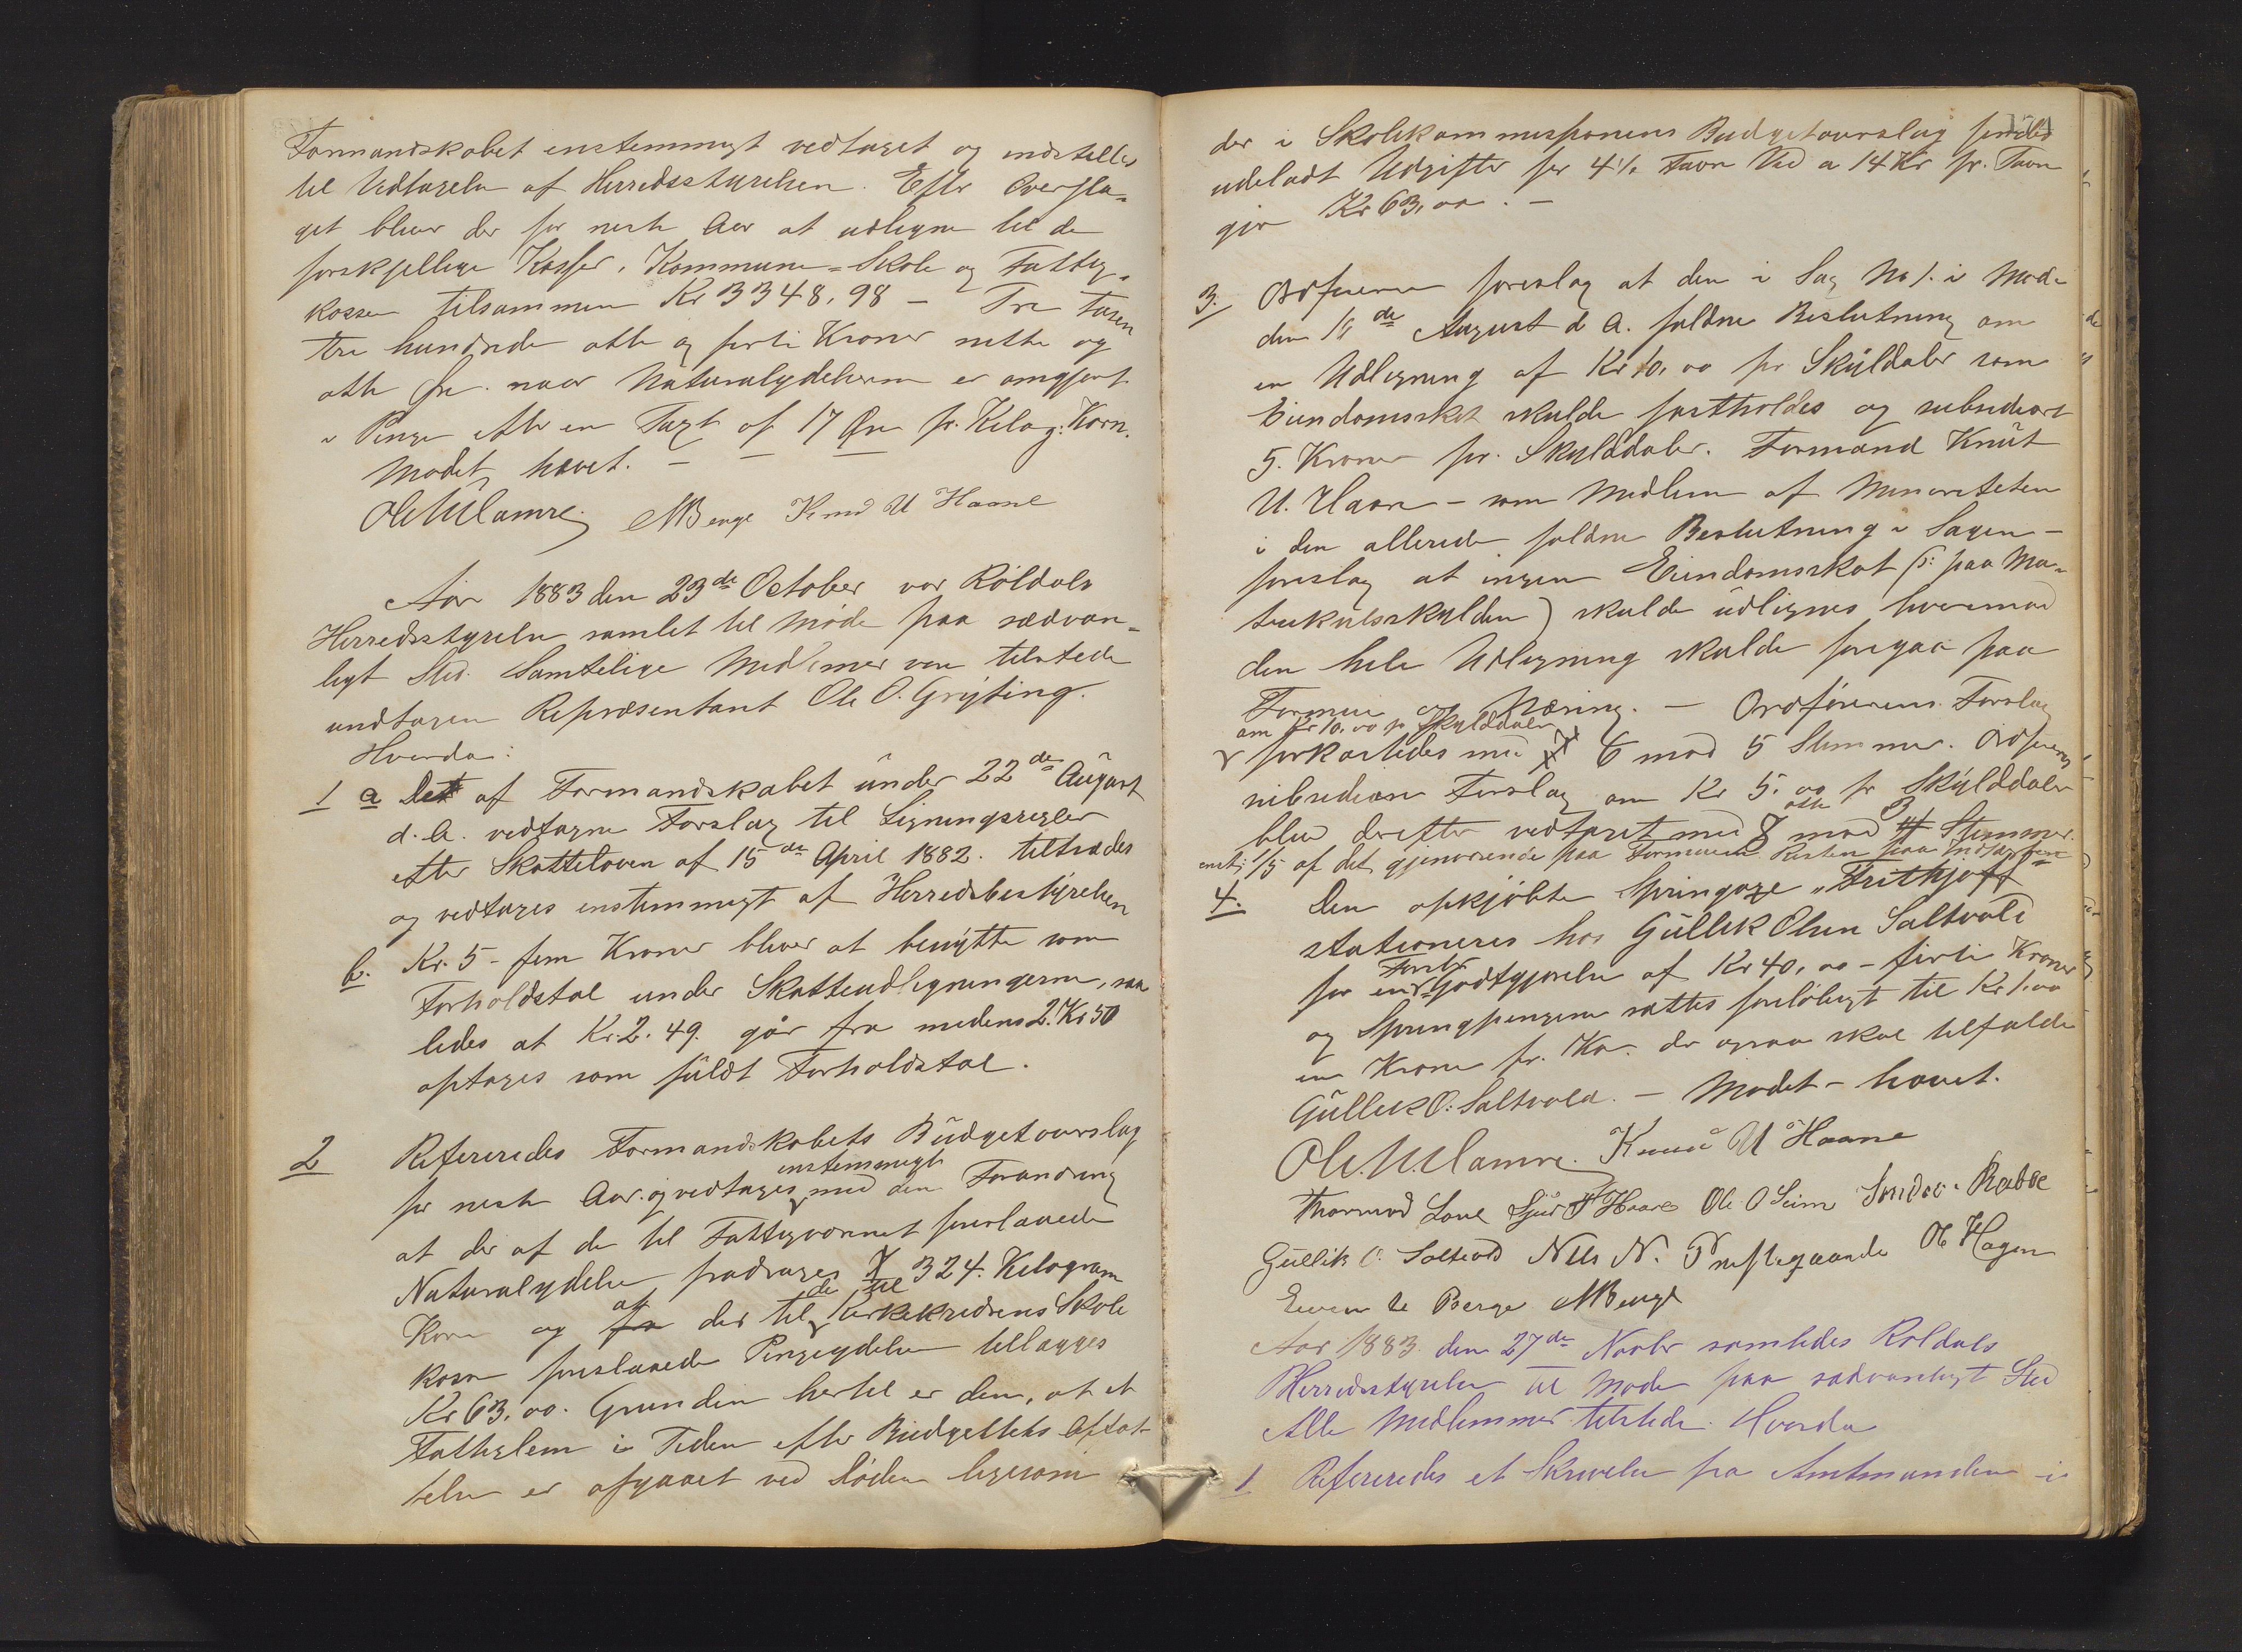 Formandskabet enstemmigt vedtaget og indstilles
til Vedtagelse af Herredsstyrelsen. Efter Oversla-
get bliver der for neste Aar at udligne til de
forskjellige Kasser, Kommune- Skole og Fattig-
kassen tilsammen Kr 3348,98 – Tre tusen
tre hundrede otte og førti Kroner nitti og
otte Øre. naar Naturalydelserne er omgjort
i Penge efter en Taxt af 17 Øre pr. Kilog: Korn.
Mødet hævet. –
Ole M Lamre. MBerge Knud U Haave
Aar 1883 den 23de October var Røldals
Herredsstyrelse samlet til Møde paa sædvan-
ligt Sted. Samtelige Medlemer var tilstede
undtagen Repræsentant Ole O. Gryting.
Hvorda:
1 a Det af Formandskabet under 22de August
d. A. vedtagne Forslag til Ligningsregler
efter Skatteloven af 15de April 1882. tiltrædes
og vedtages enstemmigt af Herredsbestyrelsen
b. Kr. 5 – fem Kroner bliver at benytte som
Forholdstal under Skatteudligningerne, saa
ledes at Kr. 2.49. går fra medens 2. Kr 50
optages som fuldt Forholdstal.
2 Refereredes Formandskabets Budgetoverslag
enstemmigt
for neste Aar. og vedtages med den Forandring
at der af de til Fattigvæsenet foreslaaede
Naturalydelser fradrages 324. Kilogram
Korn og af der til de Kirkekredsens Skole
kasse foreslaaede Pengeydelser tillægges
Kr 63,00. Grunden hertil er den, at et
Fattiglem i Tiden efter Budgettets Affat-
telse er afgaaet ved Døden ligesom
der i Skolekommissionens Budgetoverslag
udeladt Udgifter for 4½ Favn Ved a 14 Kr pr. Favn
gjør Kr 63,00. –
3. Ordføreren foreslog at den i Sag No 1. i Møde
den de August d A. faldne Beslutning om
en Udligning af Kr 10,00 pr Skylddaler som
Eiendomsskat skulde fastholdes og subsidiært
5. Kroner pr. Skylddaler. Formand Knut
U. Haave – som Medlem af Minoriteten
i den allerede faldne Beslutning i Sagen –
foreslog at ingen Eiendomsskat (ɔ: paa Ma-
trikulsskylden) skulde udlignes hvorimod
den hele Udligning skulde foregaa paa
Formue og Næring. – Ordførerens Forslag
om Kr 10,00 pr Skylddaler
forkastedes med 6 mod 5 Stemmer. Ordførerens
subsidiære Forslag om Kr 5,00 pr Skylddaler
otte 3
blev derefter vedtaget med 8 mod Stemmer.
1/5 af det gjenværende paa Formuen Resten paa Indtægten
4. Den opkjøbte Springoxe „Frithjoff“
stationeres hos Gullik Olsen Saltvold
for en Godtgjørelse af Kr 40,00 – førti Kroner
og Springpengene sættes foreløbigt til Kr 1.00
en Krone pr. Ko. der ogsaa skal tilfalde
Gullik O: Saltvold. – Mødet – hævet.
Ole M. Lamre. Knud U Haave
Thormod Lone Sjur Haare Ole O Seim Sndre Rabbe
Gullik O. Saltvold Nils N. Prestegaarde O Hagen
Even Berge MBerge
Aar 1883 den 27de Novbr samledes Røldals
Herredsstyrelse til Møde paa sædvanligt Sted
Alle Medlemmer tilstede. Hvorda
1 Refereredes et Skrivelse fra Amtmanden i